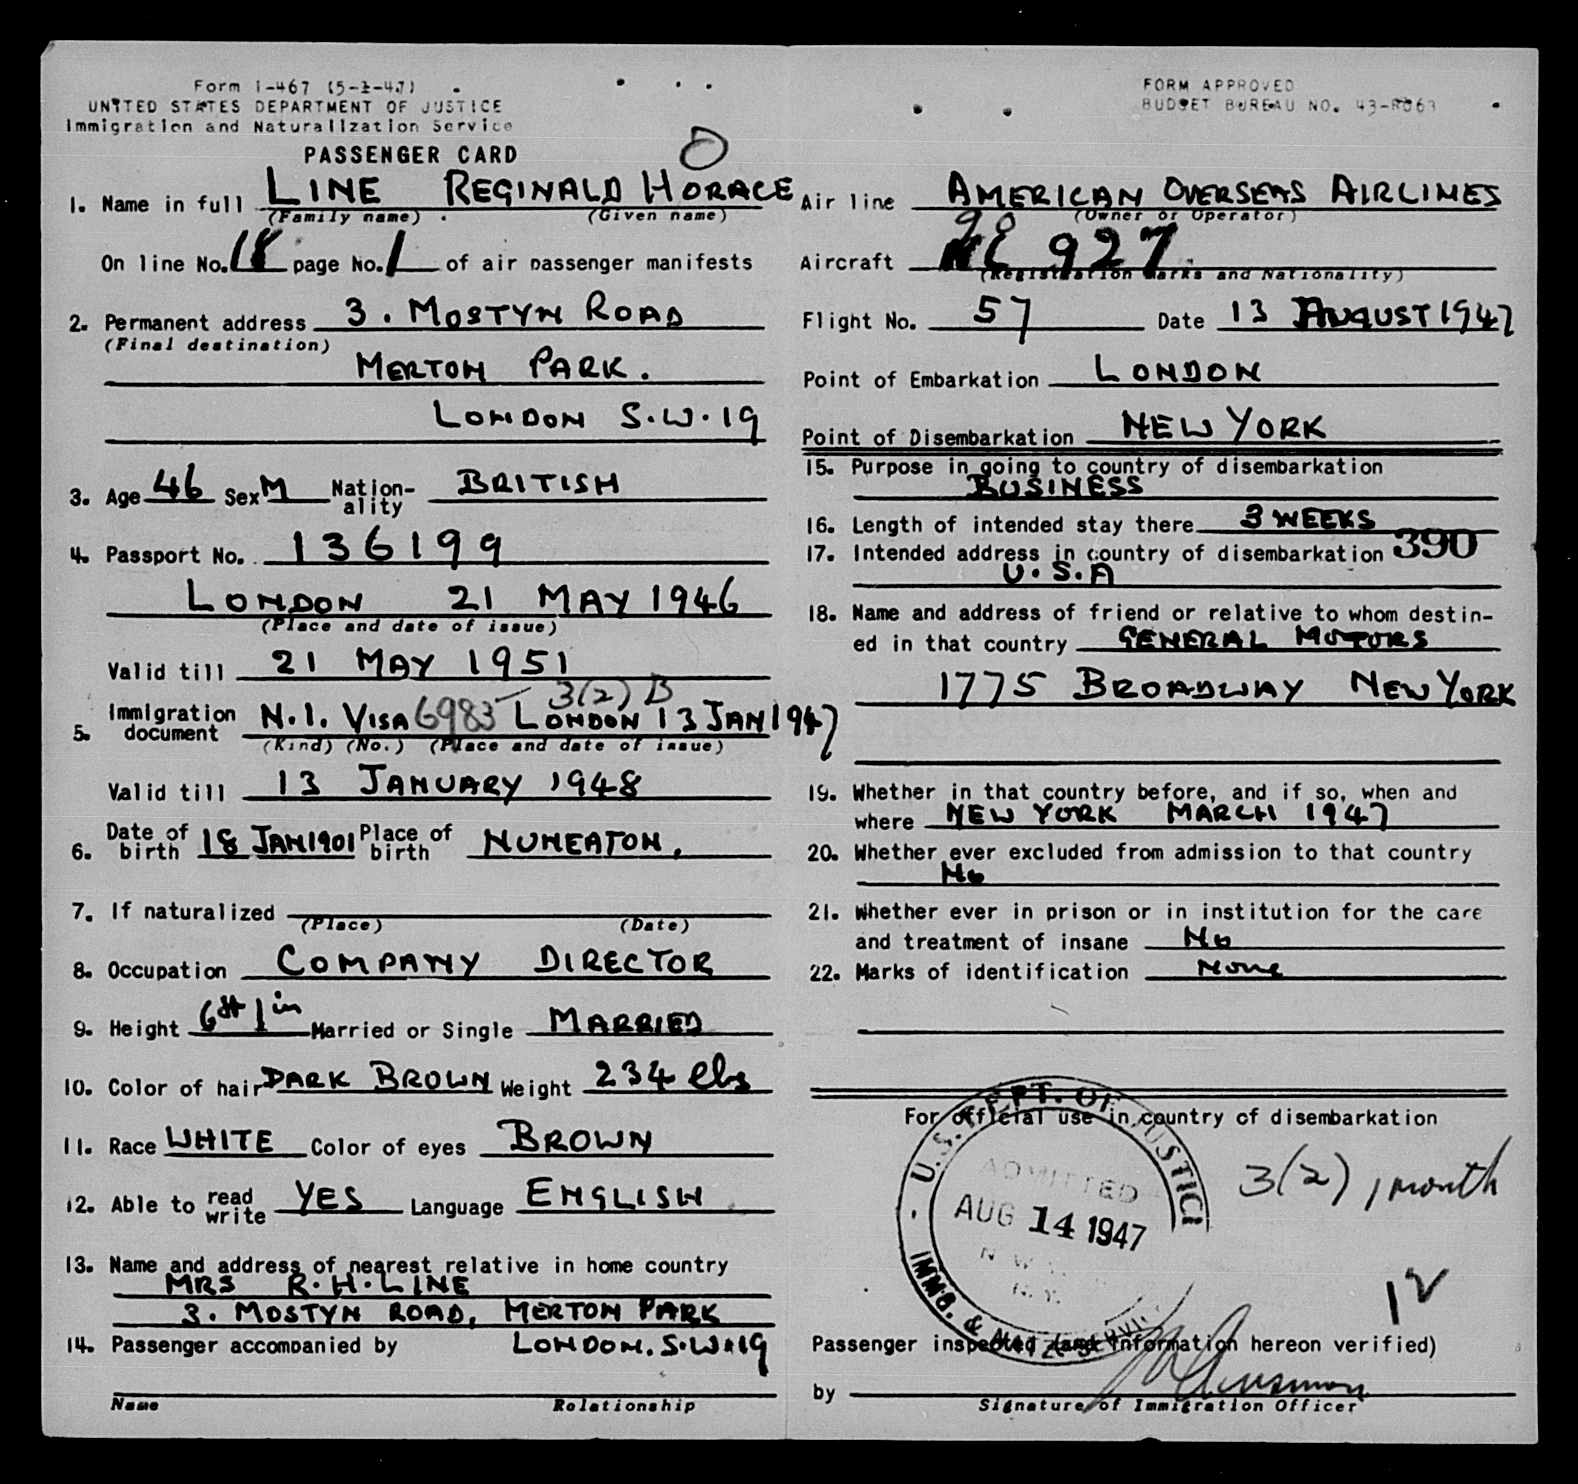 Form I-467 (5-1-47)
UNITED STATES DEPARTMENT OF JUSTICE
Immigration and Naturalization Service
PASSENGER CARD
O
1. Name in full LINE REGINALD HORACE
(Family name) (Given name)
On line No. 18 page No. 1 of air passenger manifests
2. Permanent address 3. MOSTYN ROAD
(Final destination)
MERTON PARK.
LONDON S.W.19
3. Age 46 Sex M Nation-ality BRITISH
4. Passport No. 136199
LONDON 21 MAY 1946
(Place and date of issue)
Valid till 21 MAY 1951
3(2) B
5. Immigration document N.I. VISA 6985 LONDON 13 JAN 1947
(Kind) (No.) (Place and date of issue)
Valid till 13 JANUARY 1948
6. Date of birth 18 JAN 1901 Place of birth NUNEATON.
7. If naturalized
(Place) (Date)
8. Occupation COMPANY DIRECTOR
9. Height 6ft 1in Married or Single MARRIED
10. Color of hair DARK BROWN Weight 234 lbs
11. Race WHITE Color of eyes BROWN
12. Able to read write YES Language ENGLISH
13. Name and address of nearest relative in home country
MRS R.H. LINE
3. MOSTYN ROAD, MERTON PARK
14. Passenger accompanied by LONDON. S.W.19
Name Relationship
FORM APPROVED
BUDGET BUREAU NO. 43-R063
Air line AMERICAN OVERSEAS AIRLINES
(Owner or Operator)
Aircraft 927
(Registration marks and Nationality)
Flight No. 57 Date 13 AUGUST 1947
Point of Embarkation LONDON
Point of Disembarkation NEW YORK
15. Purpose in going to country of disembarkation
BUSINESS
16. Length of intended stay there 3 WEEKS
17. Intended address in country of disembarkation 390
U.S.A
18. Name and address of friend or relative to whom destin-
ed in that country GENERAL MOTORS
1775 BROADWAY NEW YORK
19. Whether in that country before, and if so, when and
where NEW YORK MARCH 1947
20. Whether ever excluded from admission to that country
No
21. Whether ever in prison or in institution for the care
and treatment of insane No
22. Marks of identification None
For official use in country of disembarkation
U.S. DEPT. OF JUSTICE
ADMITTED
AUG 14 1947
N.Y.
IMMG. & NATZ. SERVICE
3(2) 1 month
12
Passenger inspected (and information hereon verified)
by
Signature of Immigration Officer